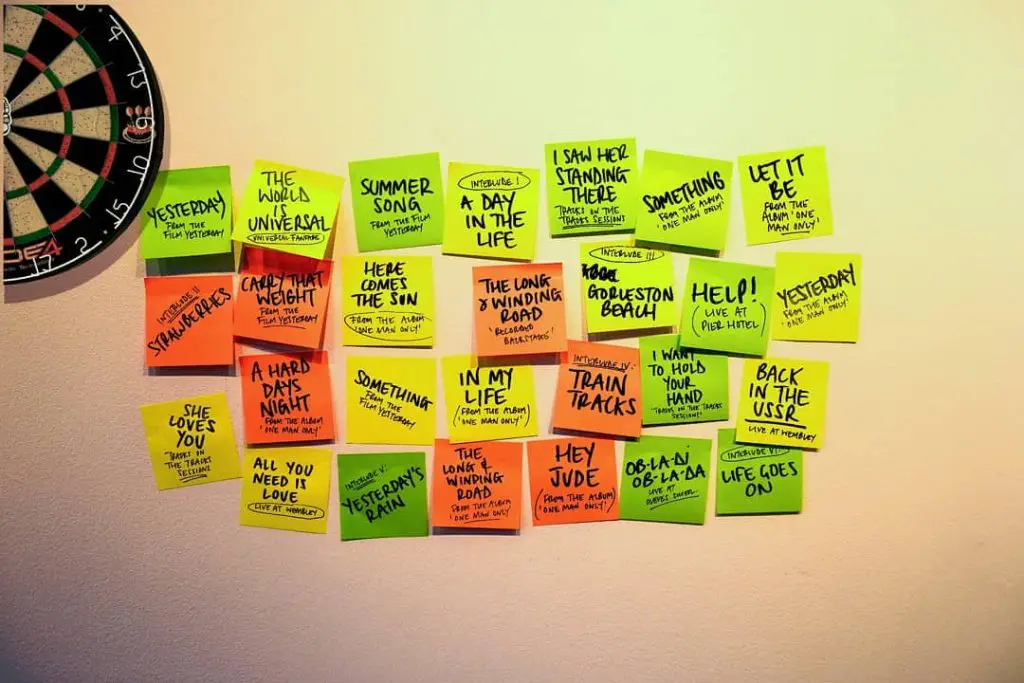 4
15
10
15
2
17
YESTERDAY
FROM THE
FILM YESTERDAY
THE
WORLD
IS
UNIVERSAL
UNIVERSAL FANFARE
SUMMER
SONG
FROM THE FILM
YESTERDAY
INTERLUDE I
A DAY
IN THE
LIFE
I SAW HER
STANDING
THERE
TRACKS ON THE
TRACKS SESSIONS
SOMETHING
FROM THE ALBUM
'ONE MAN ONLY'
LET IT
BE
FROM THE
ALBUM 'ONE
MAN ONLY'
INTERLUDE II
STRAWBERRIES
CARRY THAT
WEIGHT
FROM THE
FILM YESTERDAY
HERE
COMES
THE SUN
(FROM THE ALBUM
'ONE MAN ONLY'
THE LONG
& WINDING
ROAD
'RECORDED
BACKSTAGE'
INTERLUDE III
GORLESTON
BEACH
HELP!
(LIVE AT
PIER HOTEL)
YESTERDAY
FROM THE ALBUM
'ONE MAN ONLY'
SHE
LOVES
YOU
TRACKS ON
THE TRACKS
SESSIONS
A HARD
DAYS
NIGHT
FROM THE ALBUM
'ONE MAN ONLY'
SOMETHING
FROM THE
FILM YESTERDAY
IN MY
LIFE
(FROM THE ALBUM)
'ONE MAN ONLY'
INTERLUDE IV:
TRAIN
TRACKS
I WANT
TO HOLD
YOUR
HAND
'TRACKS ON THE TRACKS
SESSIONS'
BACK
IN THE
USSR
LIVE AT WEMBLEY
ALL YOU
NEED IS
LOVE
LIVE AT WEMBLEY
INTERLUDE V:
YESTERDAY'S
RAIN
THE
LONG &
WINDING
ROAD
FROM THE ALBUM
'ONE MAN ONLY'
HEY
JUDE
(FROM THE ALBUM)
'ONE MAN ONLY'
OB-LA-Di
OB-LA-DA
LIVE AT
INTERLUDE VI:
LIFE GOES
ON